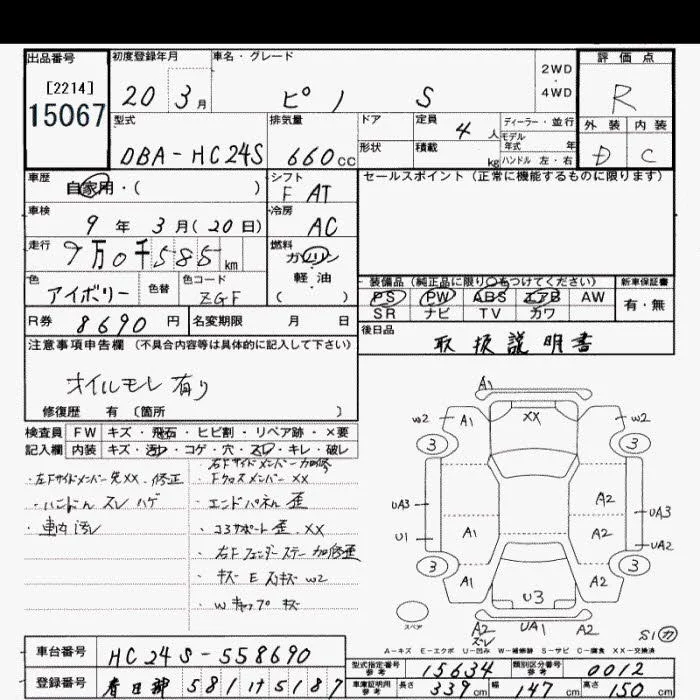 出品番号 初度登録年月 車名・グレード 評価点
[2214] 20 3月 ピノ S 2WD ・ 4WD R
15067
型式 排気量 ドア 定員 4人 ディーラー・並行 外装 内装
DBA-HC24S 660cc 形状 積載 kg モデル年式 年 ハンドル 左・右 D C
車歴 自家用・( ) シフト F AT セールスポイント(正常に機能するものに限ります)
車検 9年 3月(20日) 冷房 AC
走行 9万0千585km 燃料 ガソリン
軽油
( )
色 アイボリー 色替 色コード ZGF 装備品(純正品に限り○をつけてください) 新車保証書
PS PW ABS エアB AW 有・無
SR ナビ TV カワ
R券 8690円 名変期限 月 日 後日品
取扱説明書
注意事項申告欄(不具合内容等は具体的に記入して下さい)
オイルモレ有り
修復歴 有(箇所 )
検査員 FW キズ・飛石・ヒビ割・リペア跡・×要
記入欄 内装 キズ・汚れ・コゲ・穴・スレ・キレ・破レ
・左Fサイドメンバー先XX、修正
・ハンドルスレハゲ
・車内汚レ
・右Fサイドメンバー加修
・Fクロスメンバー XX
・エンドパネル 歪
・コアサポート歪、XX
・右Fフェンダーステー加修歪
・キズ E スリキズ W2
・Wキャップキズ
A1
W2 A1 XX W2
3 3
UA3 A2 UA3
U1 A1 A2 UA2
3 3
A1 U3 A2
スペア A2 スレ UA1 A2 S1 カ
A-キズ E-エクボ U-凹み W-補修跡 S-サビ C-腐食 XX-交換済
車台番号 HC24S-558690
登録番号 春日部 581 け 5187
型式指定番号 参考 15634 類別区分番号 参考 0012
車庫証明用 参考 長さ 339cm 幅 147cm 高さ 150cm